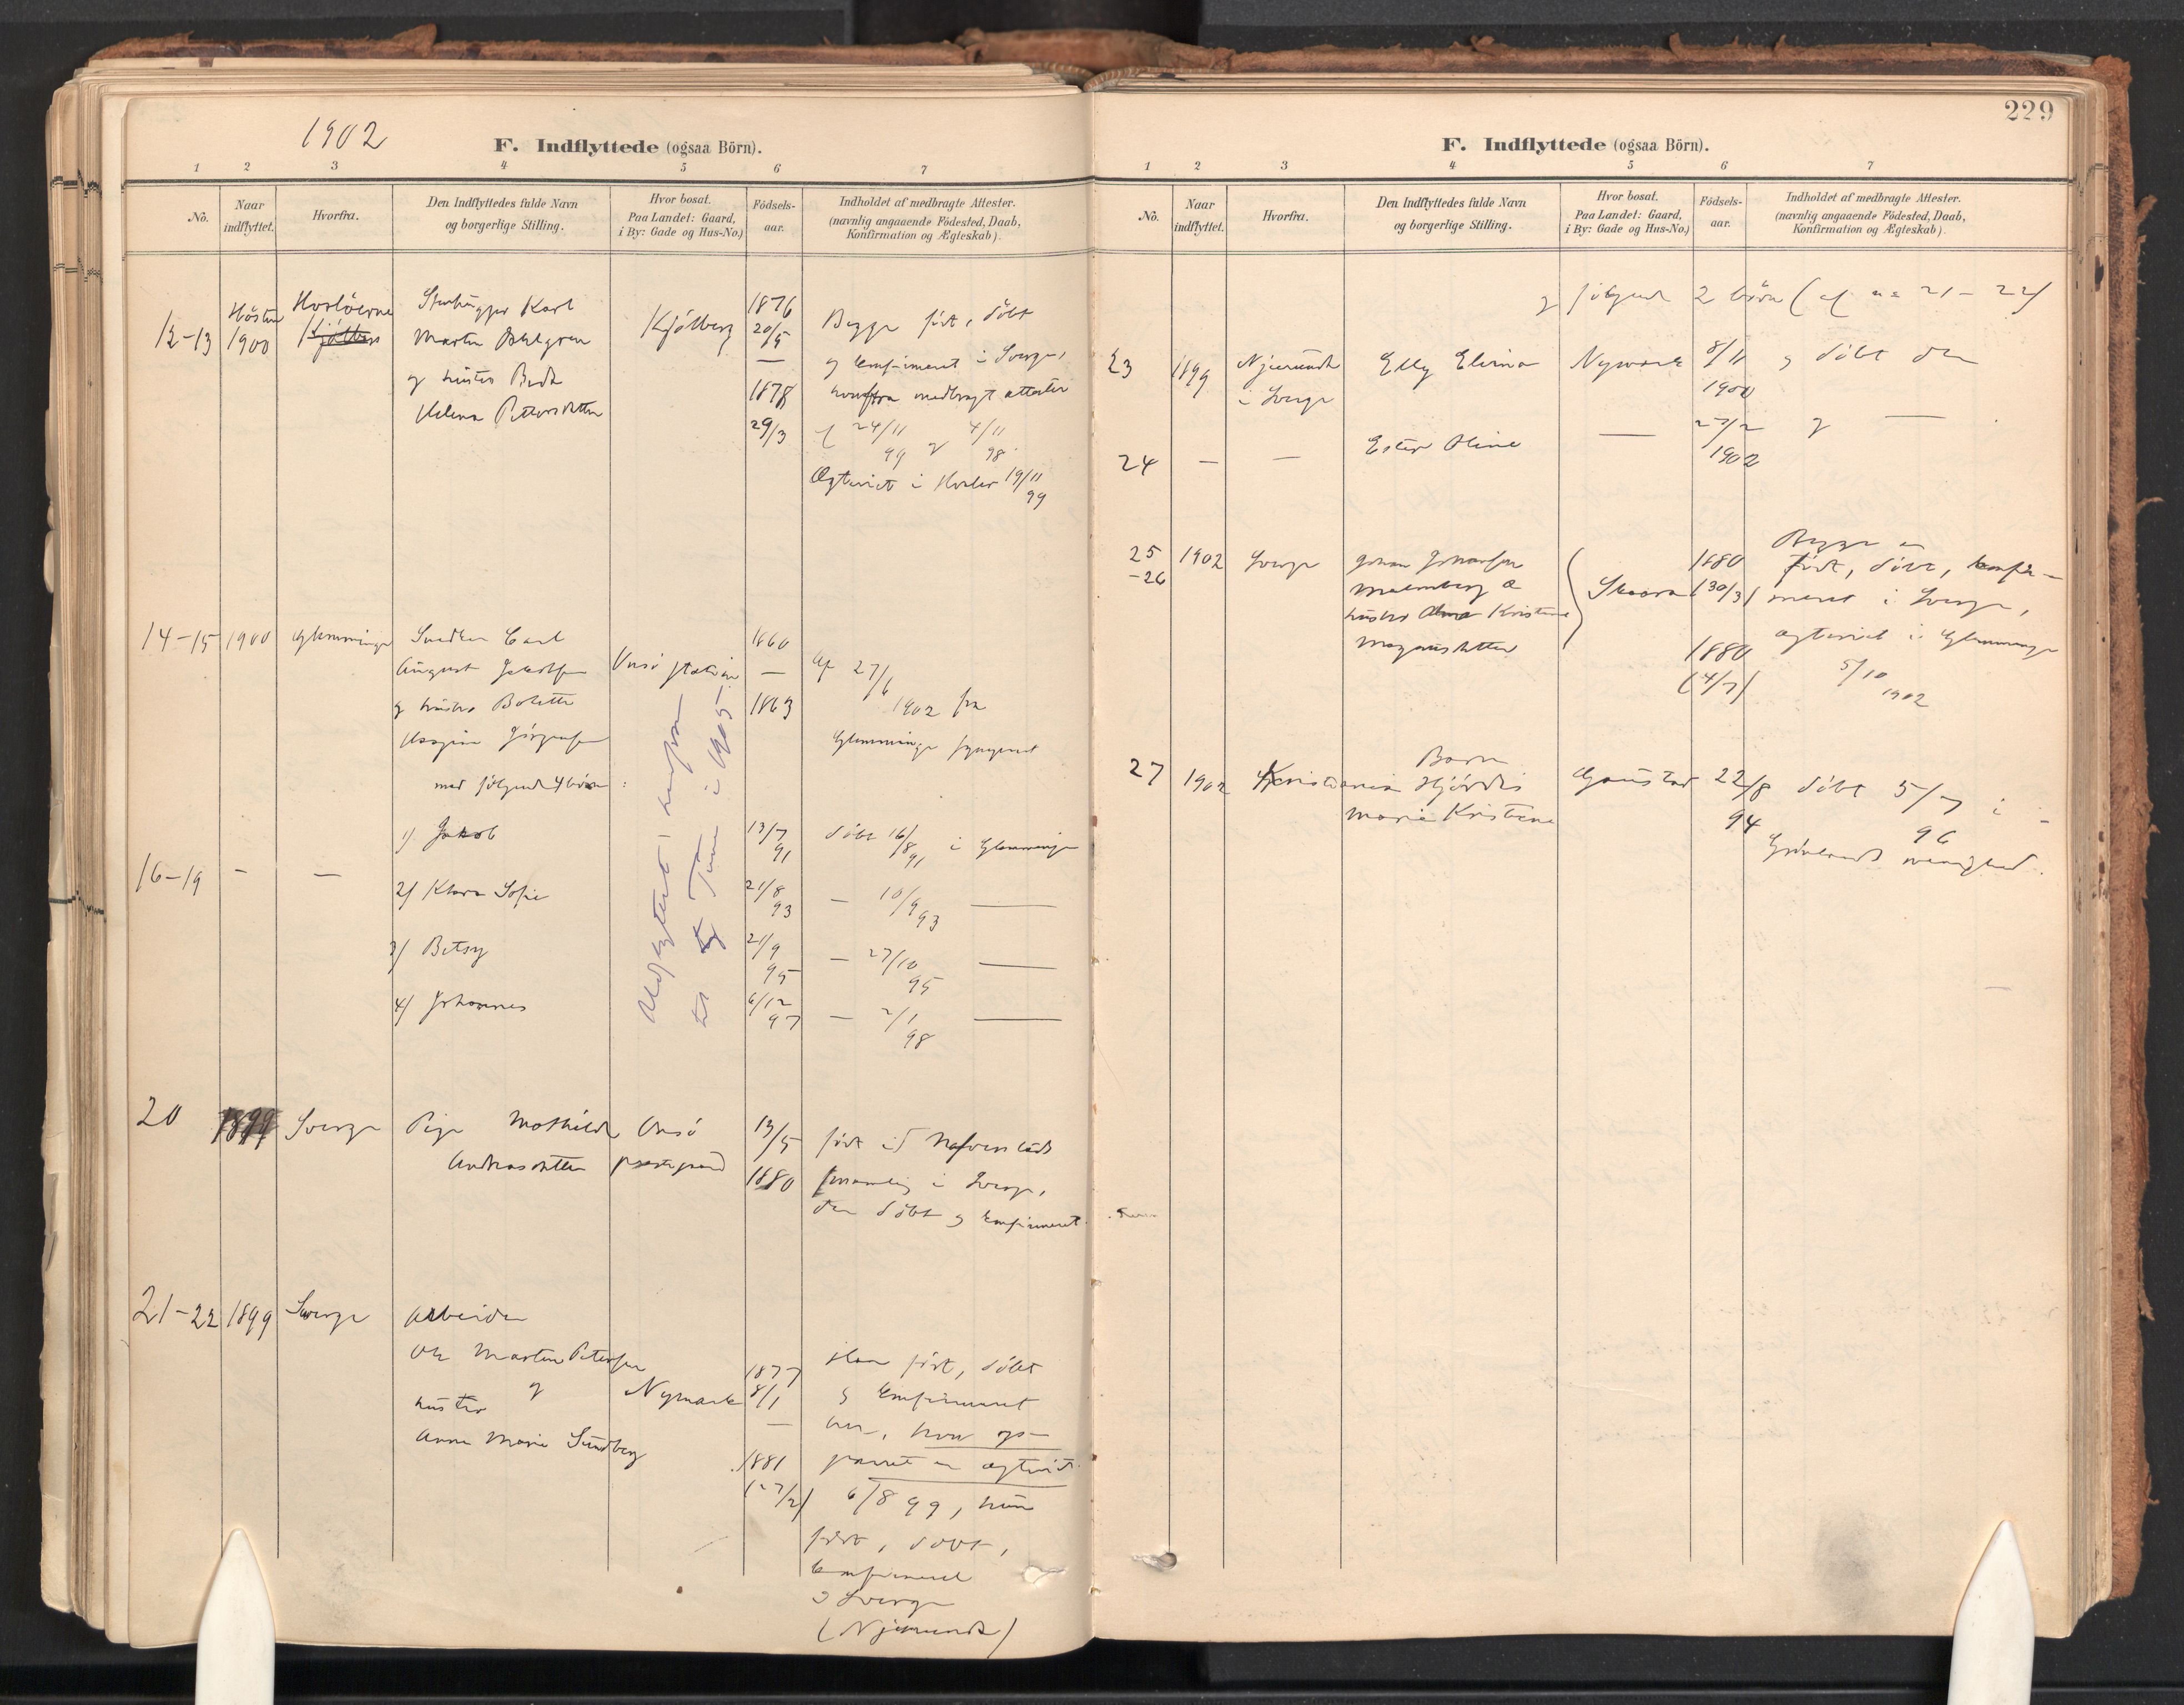 1902
F. Indflyttede (ogsaa Börn).
1 2 3 4 5 6 7
No.
Naar indflyttet.
Hvorfra.
Den Indflyttedes fulde Navn og borgerlige Stilling.
Hvor bosat. Paa Landet: Gaard, i By: Gade og Hus-No.)
Födsels-aar.
Indholdet af medbragte Attester. (navnlig angaaende Födested, Daab, Konfirmation og Ægteskab).
12-13
Hösten 1900
Hvalöerne
Karl
Martin
og hustru
Helena Pettersdatter
Kjölberg
1876
20/5
—
1878
29/3
Begge födt, döbt
og konfirmeret i Sverge,
medbragt attester
24/11 99 og 4/11 98
Ægteviet i Hvaler 19/11 99
14-15
1900
Glemminge
Snedker Carl
August
og hustru Bolette
Jörgensen
med følgende 4 børn:
Onsö station
1860
—
1863
Af 27/6
1902 fra
Glemminge sogneprest
1) Jakob
13/7 91
döbt 16/8 91 i Glemminge
16-19
—
—
2) Klara Sofie
21/8 93
— 10/9 93 —
3) Betsy
21/9 95
— 27/10 95 —
4) Johannes
6/12 97
— 2/1 98 —
Udflyttet i
til Tune i 1905
20
1899
Sverge
Pige Mathilde
Andreasdatter
Onsö
prestegaard
13/5
1880
födt i Nafverstads
i Sverge,
der döbt og konfirmeret.
21-22
1899
Sverge
Arbeider
Ole Martin Petersen
og
hustru
Anna Marie Sundberg
Nymark
1877
8/1
—
1881
(27/2)
Han födt, döbt
og konfirmeret
her,
ægteviet
6/8 99, hun
födt, döbt,
konfirmeret
i Sverge
(Njæmunde)
229
F. Indflyttede (ogsaa Börn).
1 2 3 4 5 6 7
No.
Naar indflyttet.
Hvorfra.
Den Indflyttedes fulde Navn og borgerlige Stilling.
Hvor bosat. Paa Landet: Gaard, i By: Gade og Hus-No.)
Födsels-aar.
Indholdet af medbragte Attester. (navnlig angaaende Födested, Daab, Konfirmation og Ægteskab).
og følgende 2 börn (af no 21-22)
23
1899
i Sverge
Elly Elvina
Nymark
8/11
1900
og döbt den
24
—
—
Ester Oline
—
27/2
1902
og —
25
-26
1902
Sverge
Johan Johansen
Malmberg &
hustru Kristine
Magnusdatter
Skaara
1880
(30/3)
1880
(4/7)
Begge er
födt, döbt, konfir-
meret i Sverge,
ægteviet i Glemminge
5/10
1902
27
1902
Kristiania
Barn
Hjördis
Marie Kristine
Gaustad
22/8
94
döbt 5/7 96 i
Grönlands menighed.